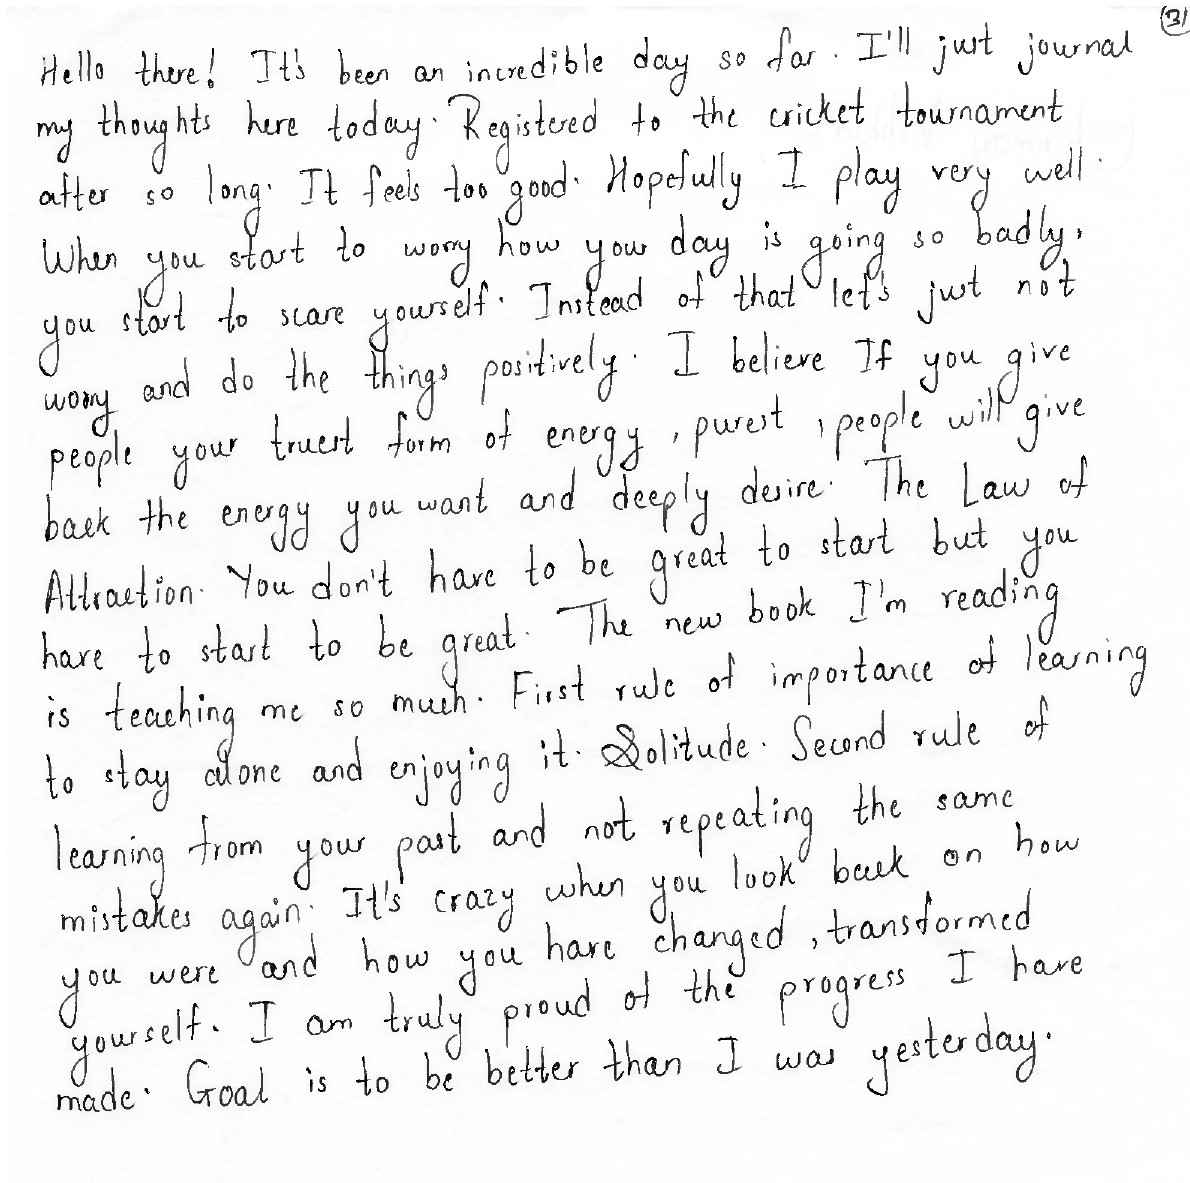 31
Hello there! It's been an incredible day so far. I'll just journal
my thoughts here today. Registered to the cricket tournament
after so long. It feels too good. Hopefully I play very well.
When you start to worry how your day is going so badly,
you start to scare yourself. Instead of that let's just not
worry and do the things positively. I believe If you give
people your truest form of energy, purest, people will give
back the energy you want and deeply desire. The Law of
Attraction. You don't have to be great to start but you
have to start to be great. The new book I'm reading
is teaching me so much. First rule of importance of learning
to stay alone and enjoying it. Solitude. Second rule of
learning from your past and not repeating the same
mistakes again. It's crazy when you look back on how
you were and how you have changed, transformed
yourself. I am truly proud of the progress I have
made. Goal is to be better than I was yesterday.